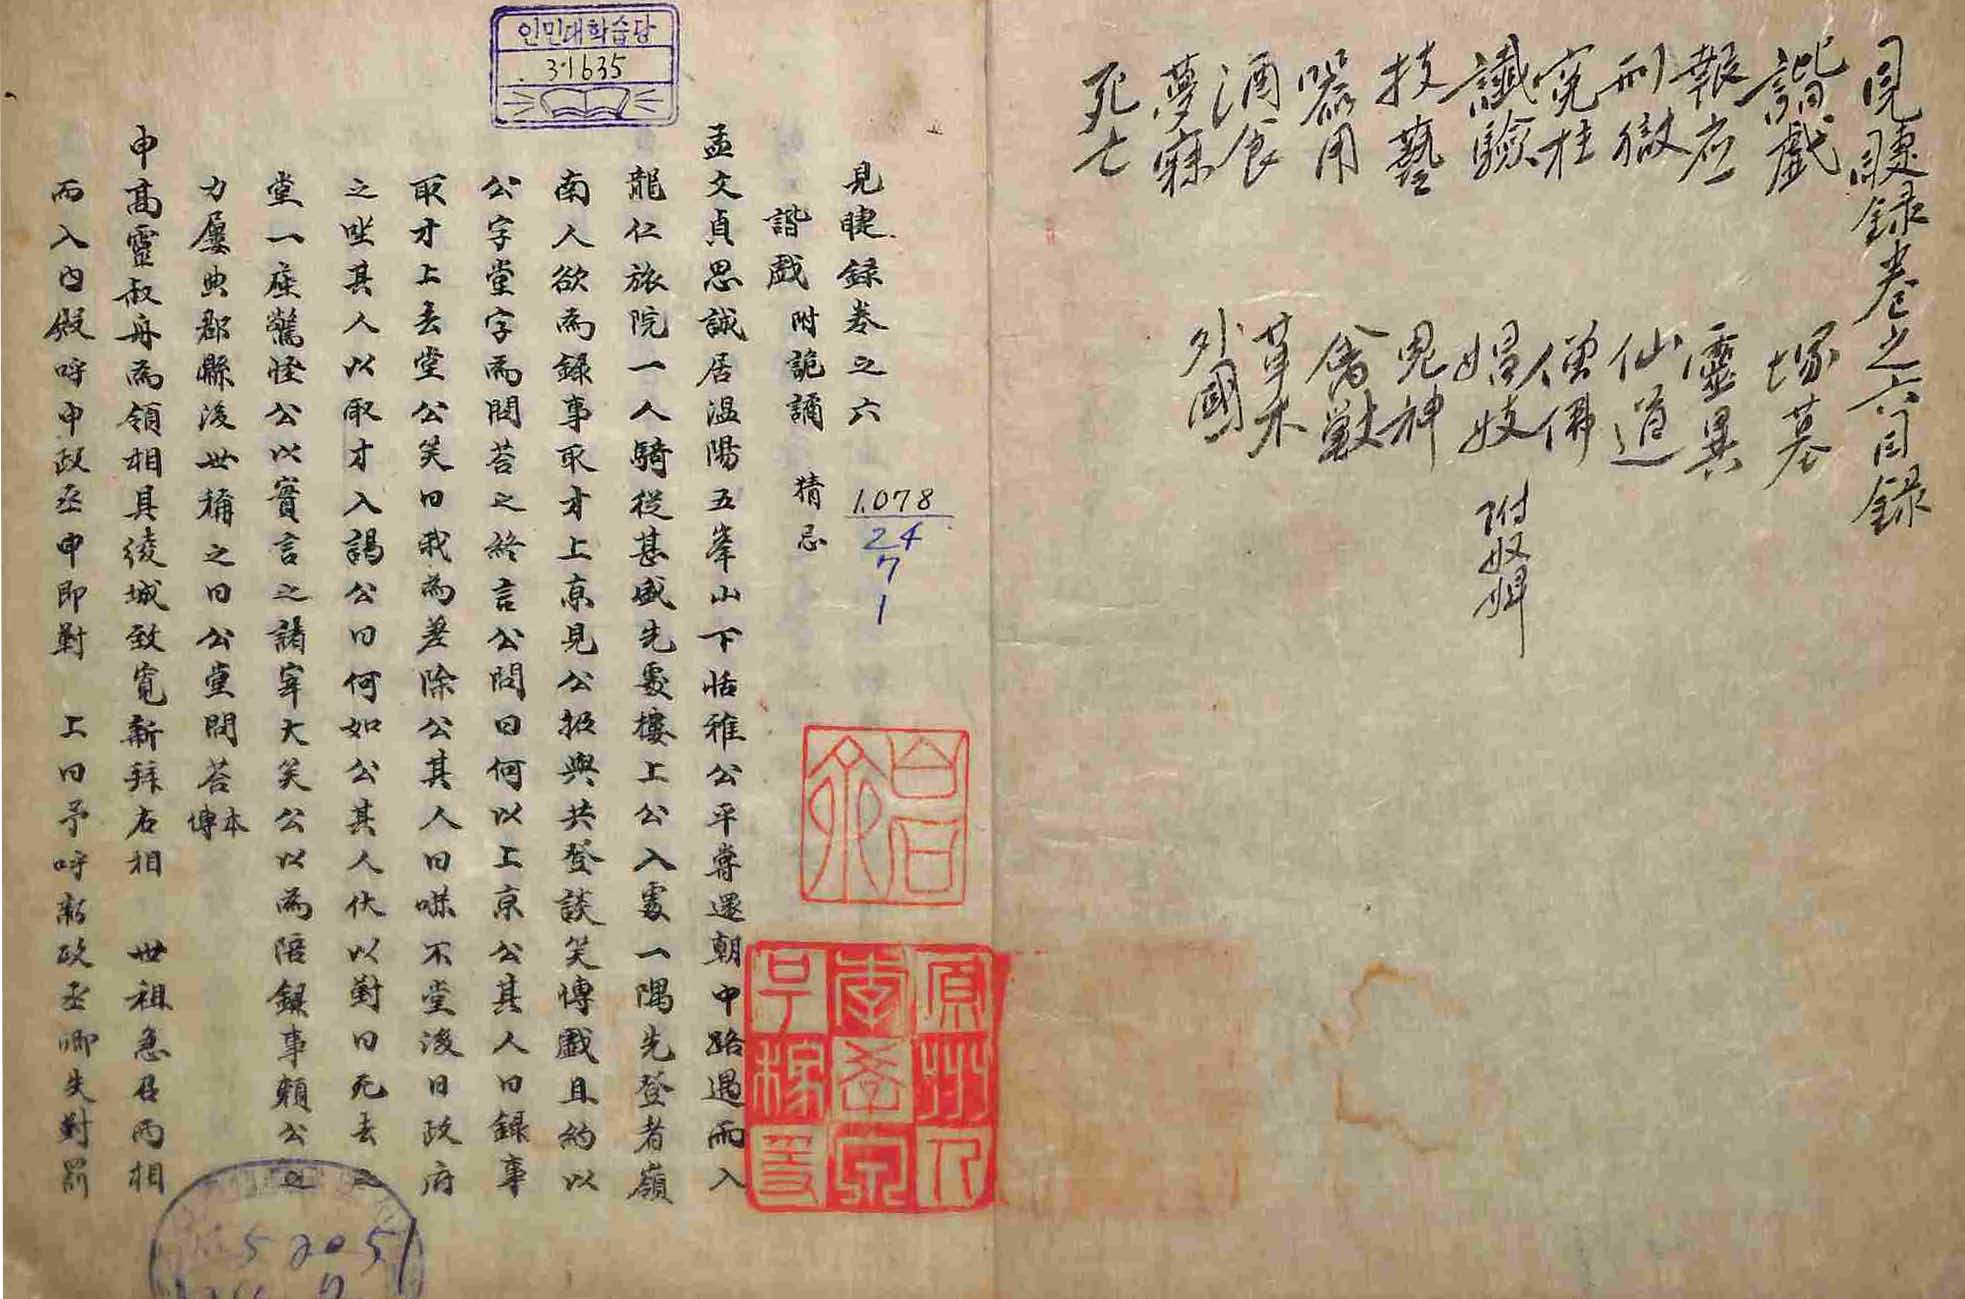 見睫錄卷之六目錄
諧戲
報應
刑獄
冤枉
讖驗
技藝
器用
酒食
夢寐
死亡
塚墓
靈異
仙道
僧佛
娼妓 附奴婢
鬼神
禽獸
草木
外國
인민대학습당
31635
見睫錄卷之六
諧戲 附詭譎 猜忌
1.078
24
7
1
孟文貞思誠居溫陽五峯山下恬雅公平嘗還朝中路遇雨入
龍仁旅院一人騎從甚盛先處樓上公入處一隅先登者嶺
南人欲為錄事取才上京見公招與共登談笑博戲且約以
公字堂字為問答之終言公問曰何以上京公其人曰錄事
取才上去堂公笑曰我為差除公其人曰嘛不堂後日政府
之坐其人以取才入謁公曰何如公其人伏以對曰死去之
堂一座驚怪公以實言之諸宰大笑公以為陪錄事賴公之
力屢典郡縣後世稱之曰公堂問答 本傳
申高靈叔舟為領相具綾城致寬新拜右相 世祖急召兩相
而入內殿呼申政丞申即對 上曰予呼新政丞卿失對罰
原州人
52051